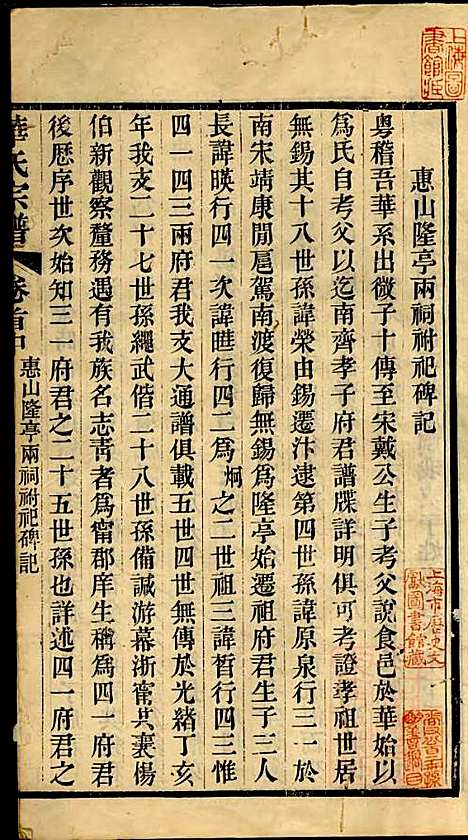 惠山隆亭兩祠祔祀碑記
粵稽吾華系出微子十傳至宋戴公生子考父說食邑於華始以
爲氏自考父以迄南齊孝子府君譜牒詳明可考證孝祖世居
無錫其十八世孫諱榮由錫遷汴逮第四世孫諱原泉行三一於
南宋靖康閒扈駕南渡復歸無錫爲隆亭始遷祖府君生子三人
長諱暎行四一次諱暀行四二爲炯之二世祖三諱晳行四三惟
四一四三兩府君我支大通譜俱載五世四世無傳於光緒丁亥
年我支二十七世孫繩武偕二十八世孫備諴游幕浙甯共襄傷
伯新觀察釐務遇有我族名志靑者爲甯郡庠生稱爲四一府君
後歷序世次始知三一府君之二十五世孫也詳述四一府君之
華氏宗譜
卷首中
惠山隆亭兩祠祔祀碑記
上海圖
書館藏
上海市歷史文
獻圖書館藏